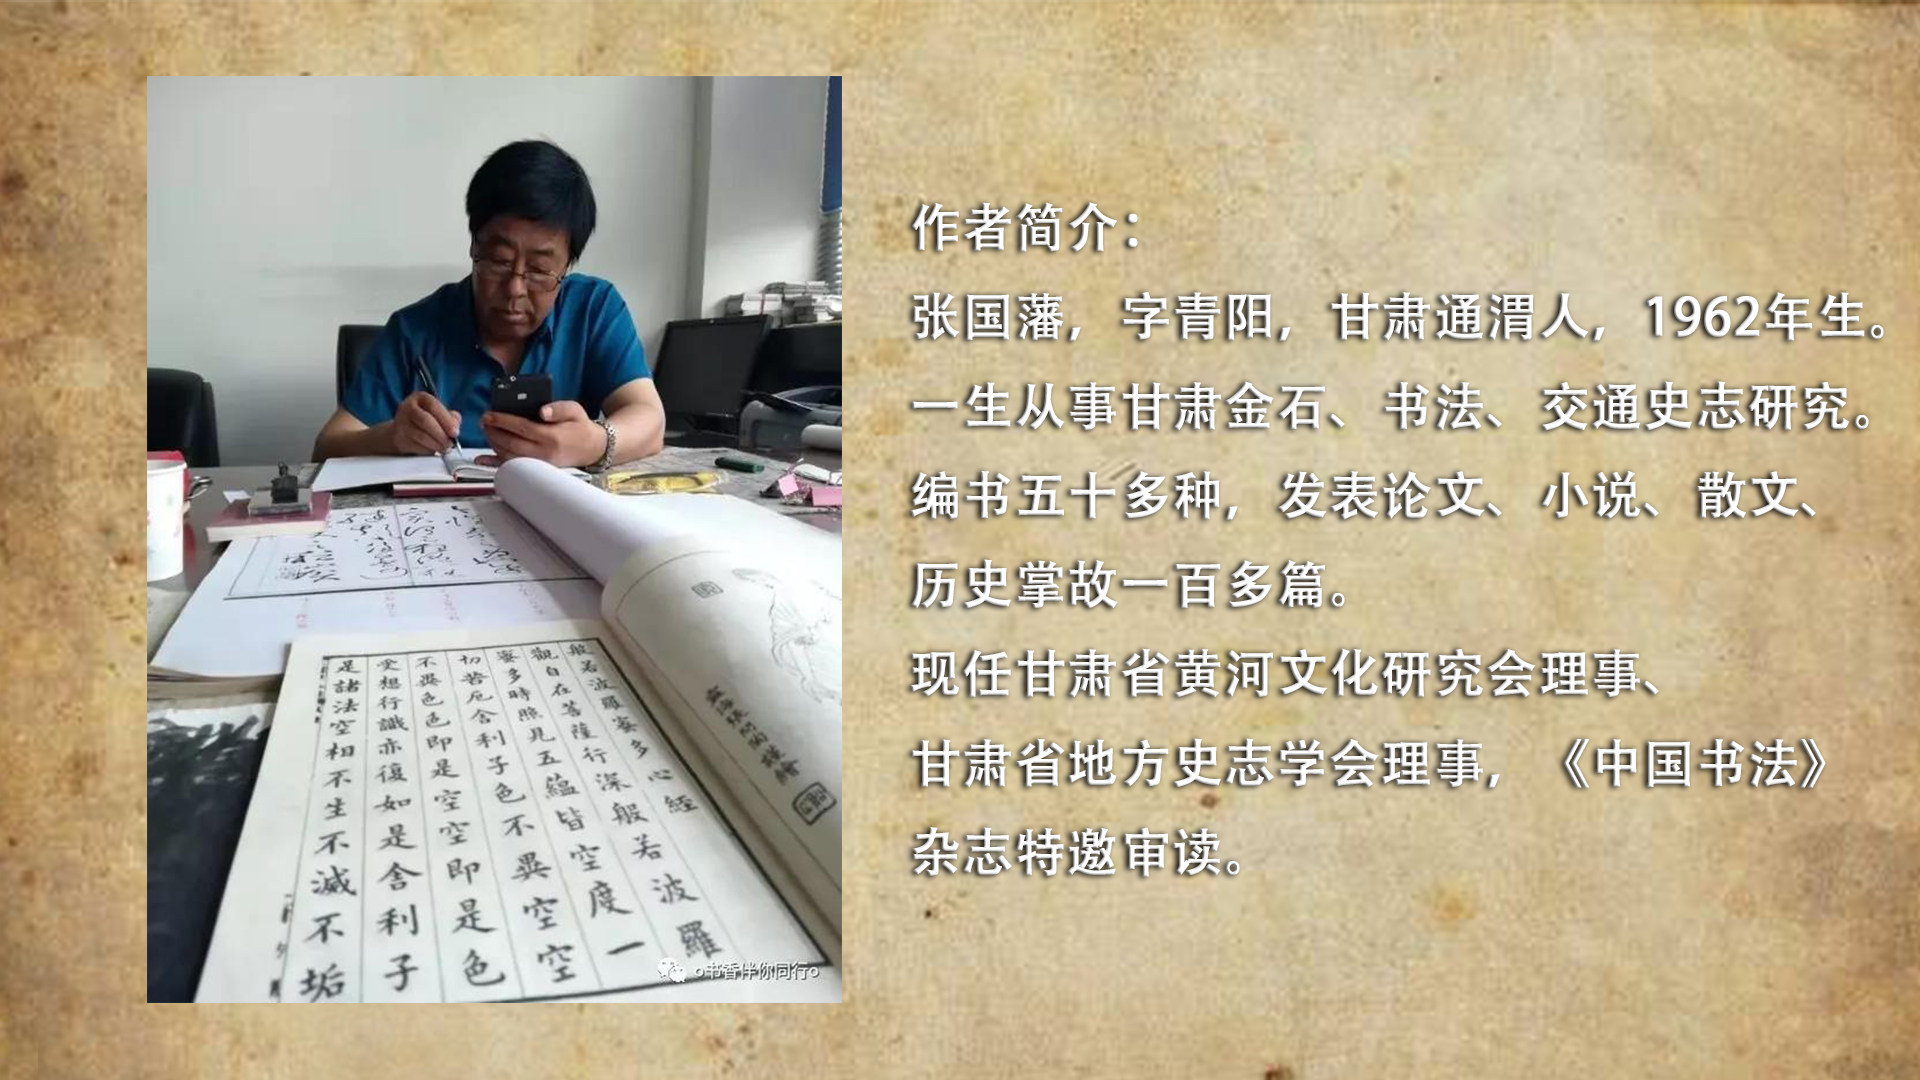 作者简介：
张国藩，字青阳，甘肃通渭人，1962年生。
一生从事甘肃金石、书法、交通史志研究。
编书五十多种，发表论文、小说、散文、
历史掌故一百多篇。
现任甘肃省黄河文化研究会理事、
甘肃省地方史志学会理事，《中国书法》
杂志特邀审读。
般若波羅蜜多心經
觀自在菩薩行深般若波羅
蜜多時照見五蘊皆空度一
切苦厄舍利子色不異空空
不異色色即是空空即是色
受想行識亦復如是舍利子
是諸法空相不生不滅不垢
o书香伴你同行o